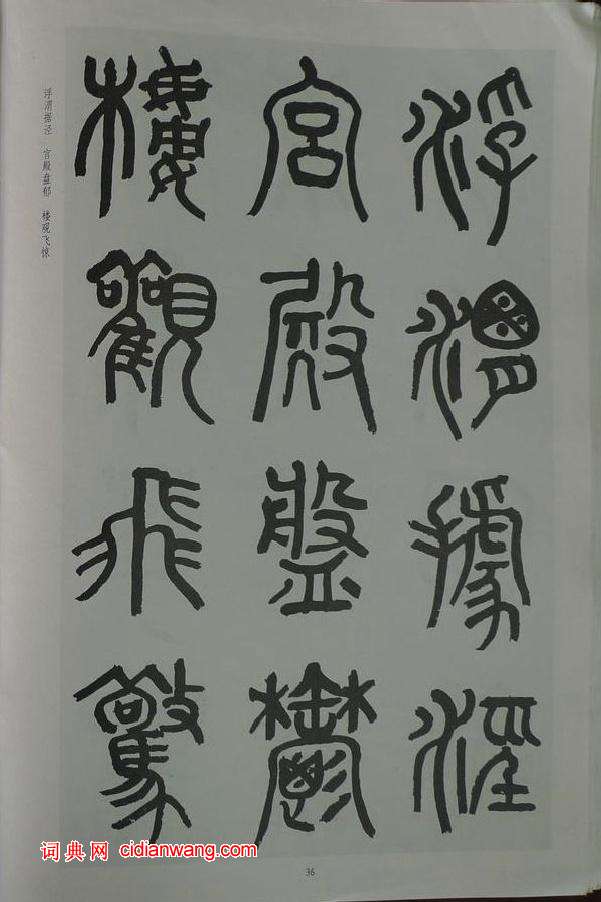 浮渭據涇
宮殿盤鬱
樓觀飛驚
浮渭据泾 宫殿盘郁 楼观飞惊
词典网 cidianwang.com
36